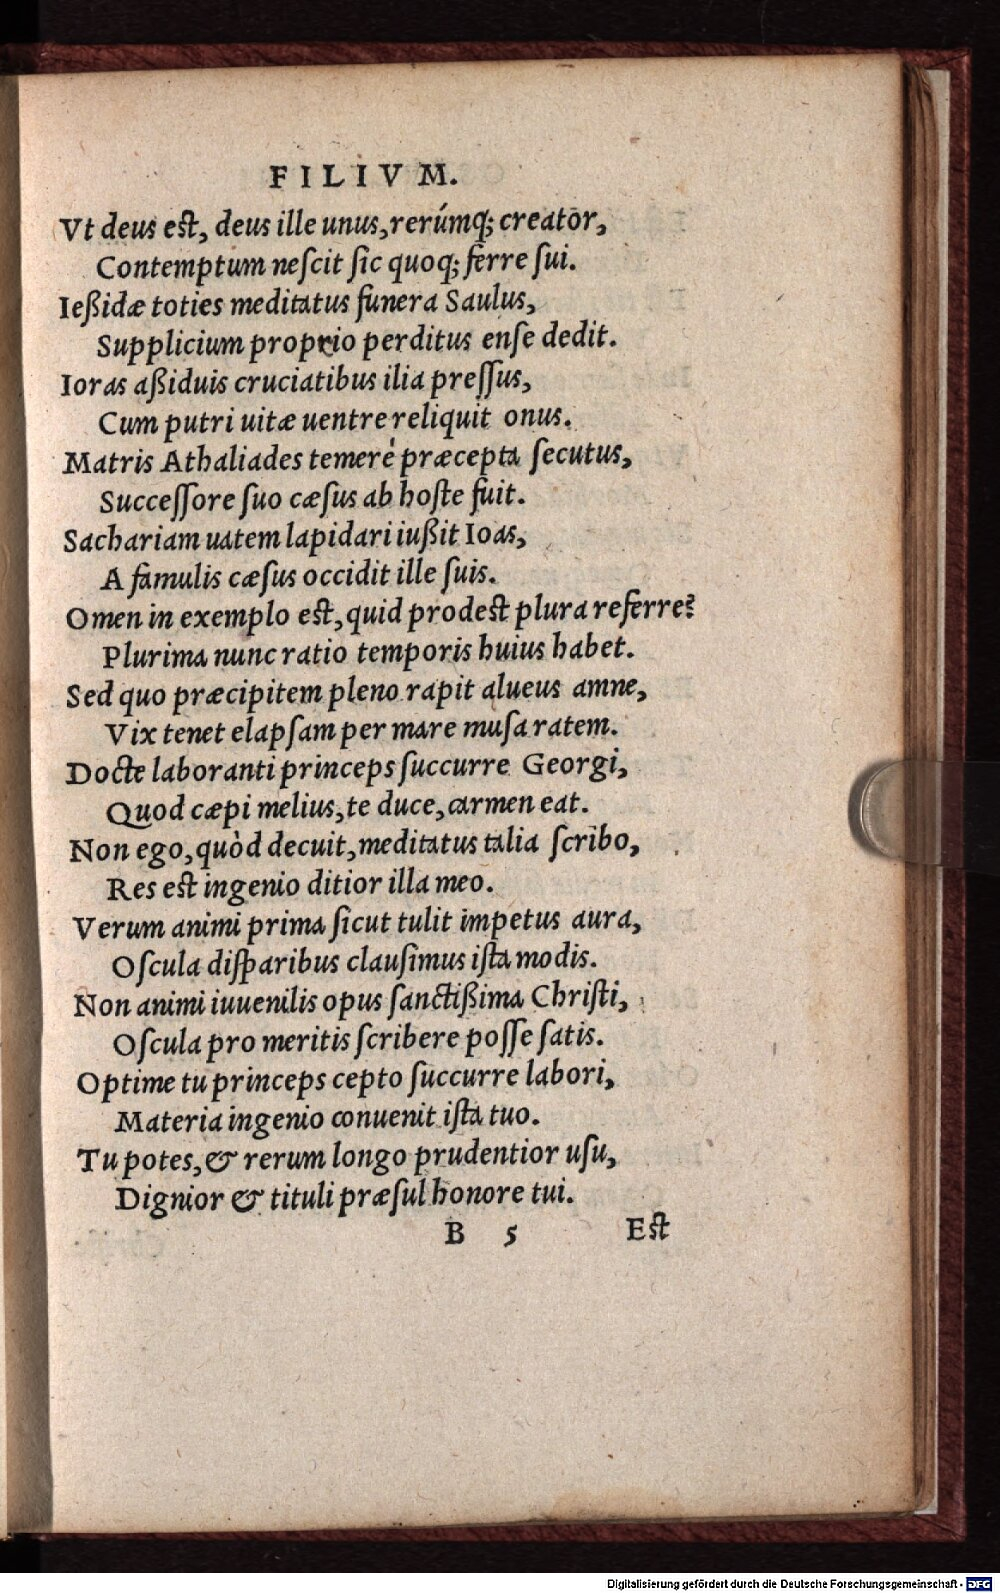 FILIVM.
Vt deus est, deus ille unus, rerúmq; creator,
Contemptum neſcit ſic quoq; ferre ſui.
Ießidæ toties meditatus funera Saulus,
Supplicium proprio perditus enſe dedit.
Ioras aßiduis cruciatibus ilia preſſus,
Cum putri uitæ uentre reliquit onus.
Matris Athaliades temerè præcepta ſecutus,
Succeſſore ſuo cæſus ab hoſte fuit.
Sachariam uatem lapidari iußit Ioas,
A famulis cæſus occidit ille ſuis.
Omen in exemplo est, quid prodest plura referre?
Plurima nunc ratio temporis huius habet.
Sed quo præcipitem pleno rapit alueus amne,
Vix tenet elapſam per mare muſa ratem.
Docte laboranti princeps ſuccurre Georgi,
Quod cæpi melius, te duce, carmen eat.
Non ego, quòd decuit, meditatus talia ſcribo,
Res est ingenio ditior illa meo.
Verum animi prima ſicut tulit impetus aura,
Oſcula diſparibus clauſimus iſta modis.
Non animi iuuenilis opus ſanctißima Chriſti,
Oſcula pro meritis ſcribere poſſe ſatis.
Optime tu princeps cepto ſuccurre labori,
Materia ingenio conuenit iſta tuo.
Tu potes, & rerum longo prudentior uſu,
Dignior & tituli præſul honore tui.
B 5 Est
Digitalisierung gefördert durch die Deutsche Forschungsgemeinschaft - DFG